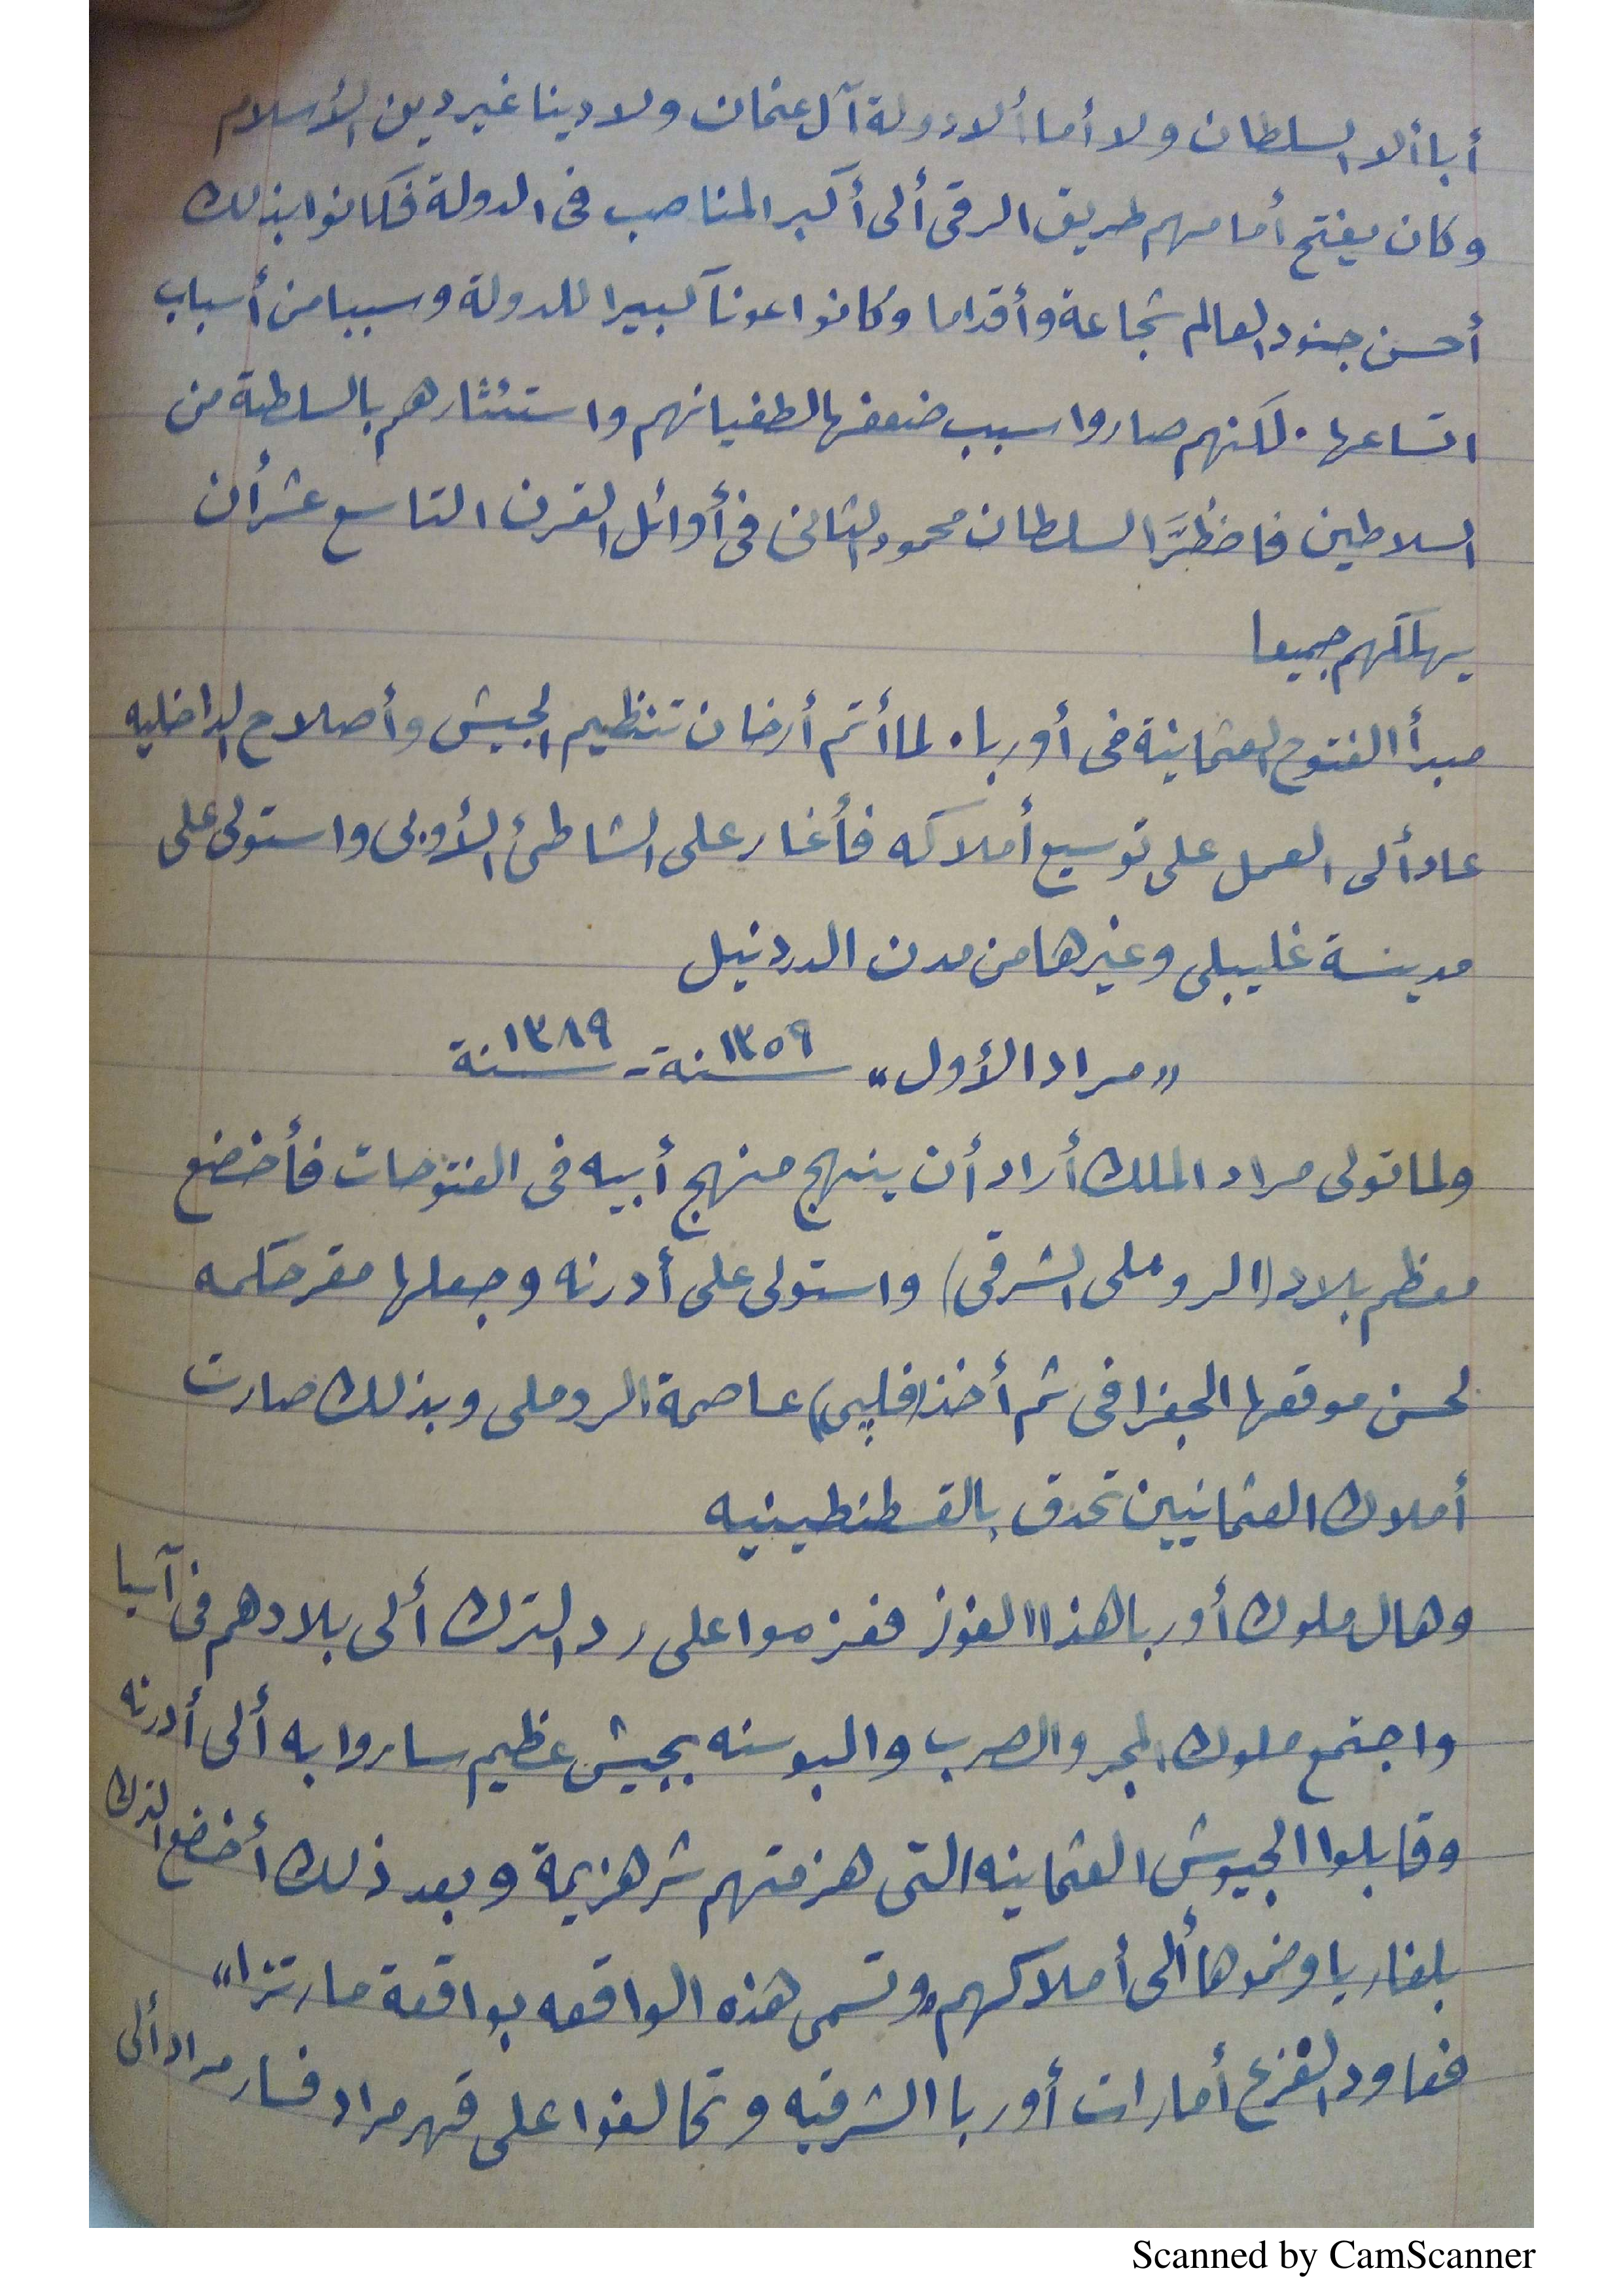 أبا ألا السلطان ولا أما ألا دولة آل عثمان ولا دينا غير دين الأسلام
وكان يفتح أمامهم طريق الرقى ألى أكبر المناصب فى الدولة فكانوا بذلك
أحسن جنود العالم شجاعة وأقداما وكانوا عونا كبيرا للدولة وسببا من أسباب
اتساعها. لكنهم صاروا سبب ضعفها لطغيانهم واستئثارهم بالسلطة من
السلاطين فاضظرَّ السلطان محمود الثانى فى أوائل القرن التاسع عشر أن
يهلكهم جميعا
مبدأ الفتوح العثمانية فى أوربا. لما أتم أرخان تنظيم الجيش وأصلاح الداخليه
عاد ألى العمل على توسيع أملاكه فأغار على الشاطئ الأوربى واستولى على
مدينة غليبلى وغيرها من مدن الدردنيل
"مراد الأول" سنة ١٣٥٩ - سنة ١٣٨٩
ولما تولى مراد الملك أراد أن ينهج منهج أبيه فى الفتوحات فأخضع
معظم بلاد (الروملى الشرقى) واستولى على أدرنه وجعلها مقر حكمه
لحسن موقعها الجغرافى ثم أخذ (فلپى) عاصمة الروملى وبذلك صارت
أملاك العثمانيين تحدق بالقسطنطينيه
وهال ملوك أوربا هذا الفوز فعزموا على رد الترك ألى بلادهم فى آسيا
واجتمع ملوك المجر والصرب والبوسنه بجيش عظيم ساروا به ألى أدرنه
وقابلوا الجيوش العثمانيه التى هزمتهم شر هزيمة وبعد ذلك أخضع الترك
بلغاريا وضموها ألى أملاكهم "وتسمى هذه الواقعه بواقعة مارتزا"
فعاود الفزع أمارات أوربا الشرقيه وتحالفوا على قهر مراد فسار مراد ألى
Scanned by CamScanner